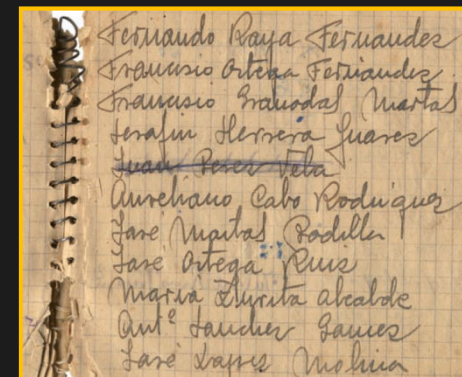 Fernando Raya Fernandez
Francisco Ortega Fernandez
Francisco Granados Martos
Serafin Herrera Juarez
Juan Perez Vela
Aureliano Cabo Rodriguez
José Padilla
José Ortega Ruiz
Maria Zurita alcalde
Antº Sanchez Gamez
José Lopez Molina